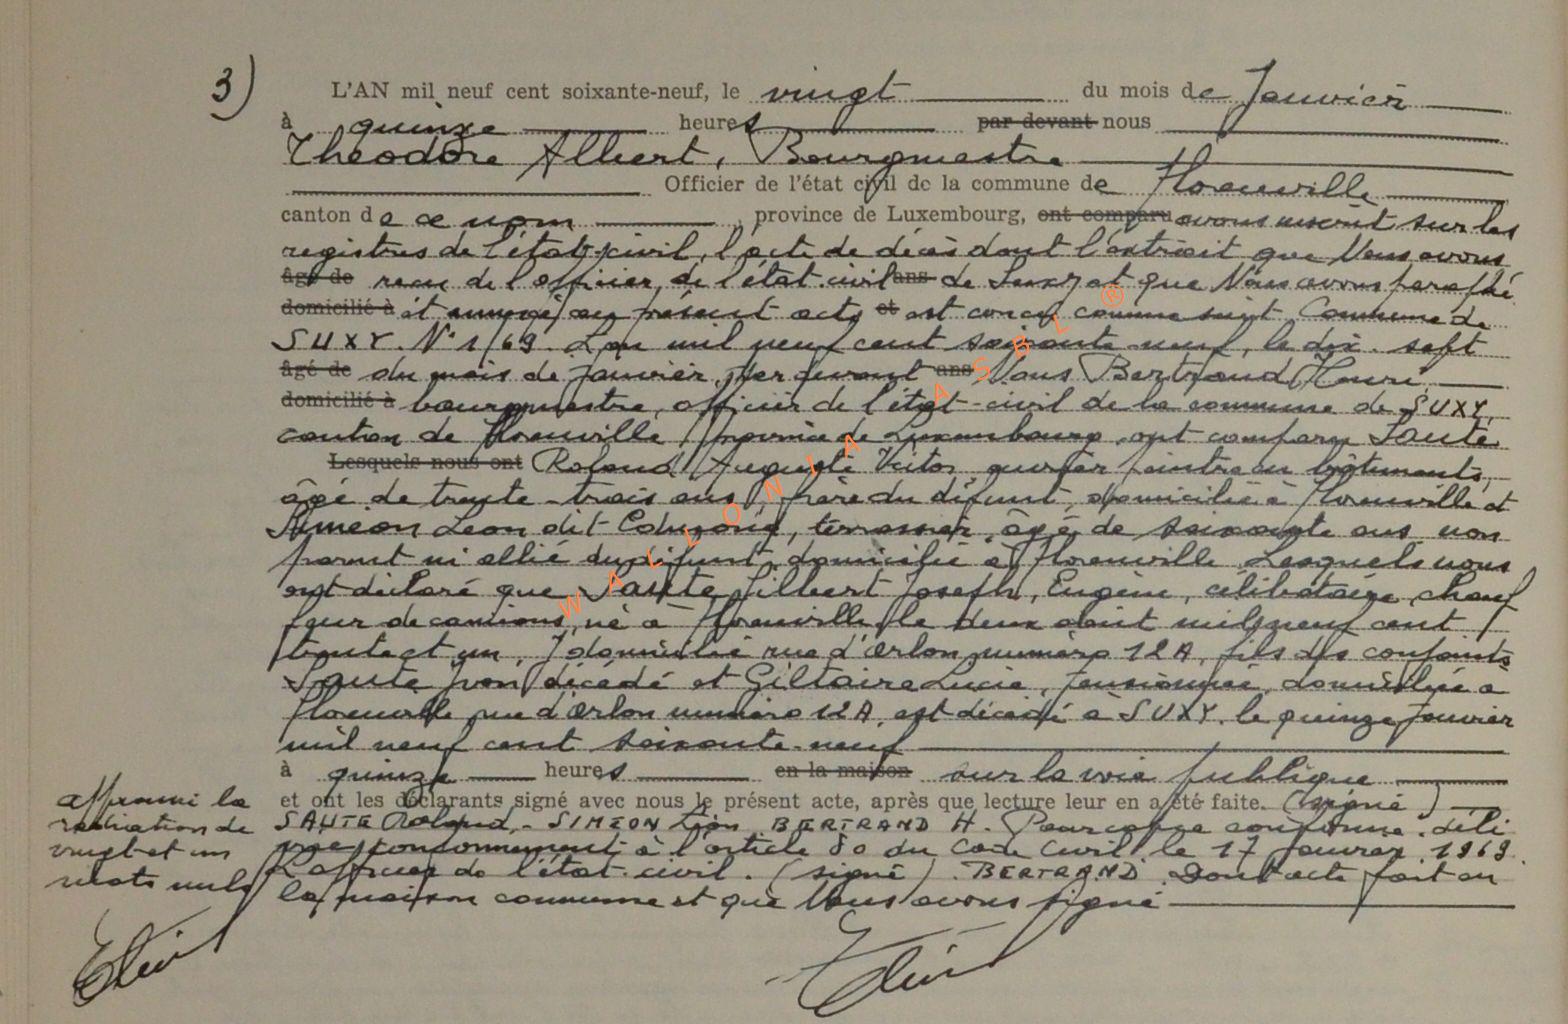 3) L'AN mil neuf cent soixante-neuf, le vingt du mois de Janvier
à quinze heures par devant nous
Théodore Albert, Bourgmestre
Officier de l'état civil de la commune de Florenville
canton de ce nom, province de Luxembourg, ont comparu avons inscrit sur les
registres de l'état-civil, l'acte de décès dont l'extrait que Nous avons
âgé de reçu de l'officier de l'état civil ans de Suxy et que Nous avons paraphé
domicilié à et annexé au présent acte et est conçu comme suit Commune de
SUXY. N° 1/69. L'an mil neuf cent soixante-neuf, le dix-sept
âgé de du mois de Janvier, par devant ans Nous Bertrand Henri
domicilié à bourgmestre, officier de l'état-civil de la commune de SUXY,
canton de Florenville province de Luxembourg, ont comparu Sauté
Lesquels nous ont Roland Auguste Victor ouvrier peintre en bâtiments,
âgé de trente-trois ans, frère du défunt, domicilié à Florenville et
Siméon Léon dit, terrassier, âgé de soixante ans non
parent ni allié du défunt, domicilié à Florenville. Lesquels nous
ont déclaré que Sauté Gilbert Joseph, Eugène, célibataire, chauf
feur de camions, né à Florenville le deux août mil neuf cent
trente et un, y domicilié rue d'Arlon numéro 12A, fils des conjoints
Sauté Yvon décédé et Giltaire Lucie, pensionnée, domiciliée à
Florenville rue d'Arlon numéro 12A, est décédé à SUXY, le quinze Janvier
mil neuf cent soixante-neuf
à quinze heures en la maison sur la voie publique
et ont les déclarants signé avec nous le présent acte, après que lecture leur en a été faite. (signé)
SAUTE Roland - SIMEON Léon. BERTRAND H. Pour copie conforme, déli
vrée conformément à l'article 80 du Code Civil le 17 Janvier 1969.
L'officier de l'état-civil. (signé) BERTRAND. Dont acte fait en
la maison commune et que Nous avons signé
approuvé la
radiation de
vingt et un
mots nuls
WALLONIA ASBL ®